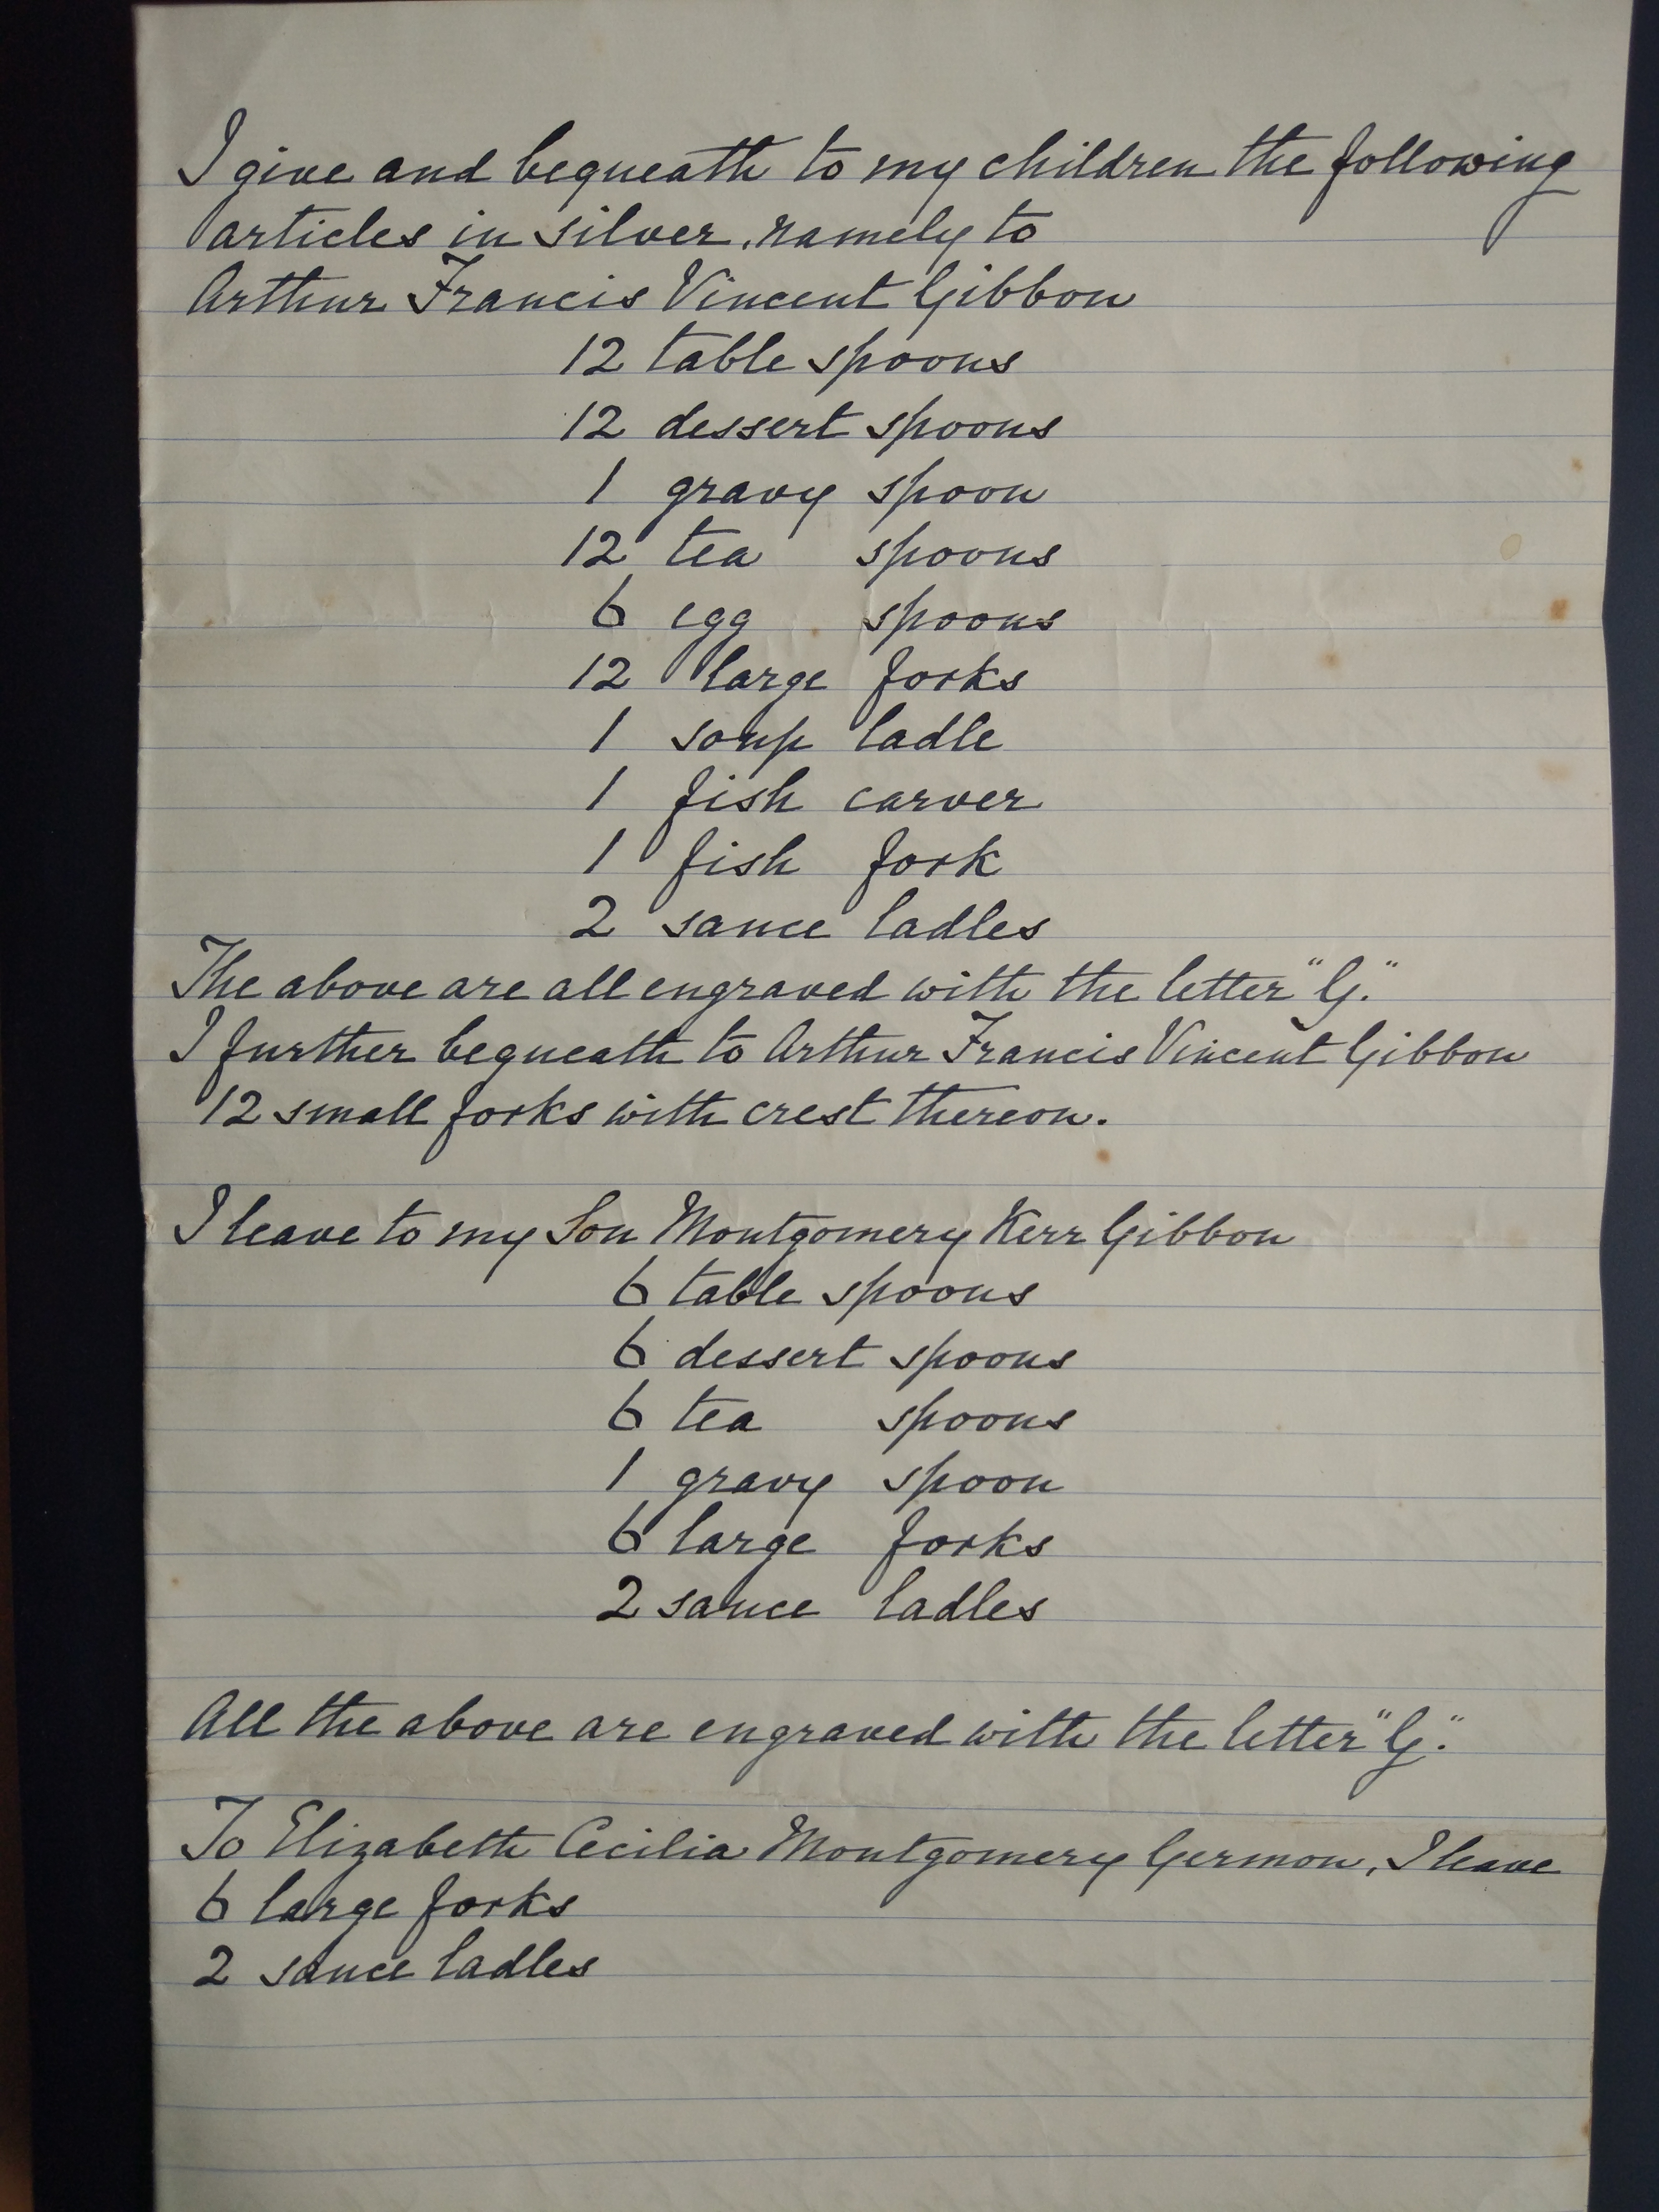 I give and bequeath to my children the following
articles in silver, namely to
Arthur Francis Vincent Gibbon
12 table spoons
12 dessert spoons
1 gravy spoon
12 tea spoons
6 egg spoons
12 large forks
1 soup ladle
1 fish carver
1 fish fork
2 sauce ladles
The above are all engraved with the letter "G."
I further bequeath to Arthur Francis Vincent Gibbon
12 small forks with crest thereon.
I leave to my Son Montgomery Kerr Gibbon
6 table spoons
6 dessert spoons
6 tea spoons
1 gravy spoon
6 large forks
2 sauce ladles
All the above are engraved with the letter "G."
To Elizabeth Cecilia Montgomery Germon, I leave
6 large forks
2 sauce ladles